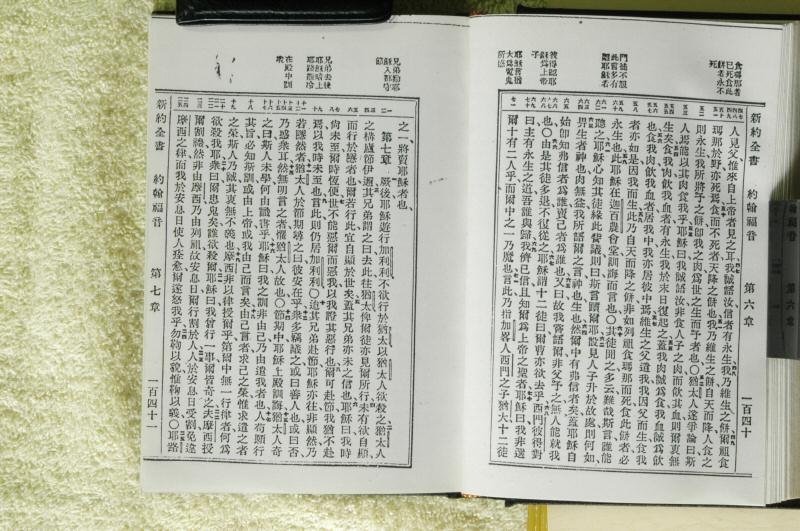 新約全書 約翰福音 第六章 一百四十
食瑪那者
已死食此
餅者永不
死
門徒不服
此言多有
離耶穌者
彼得認耶
穌爲上帝
子
耶穌言猶
大爲冤鬼
所惑
人見父惟來自上帝者見之耳我誠語汝信者有永生我乃維生之餅爾祖食
瑪那於野亦死焉食而不死者天降之餅也我乃維生之餅自天而降人食之
則永生我所將予之餅卽我之肉爲世之生而予者也○猶太人遂爭論曰斯
人焉能以其肉食我乎耶穌曰我誠語汝非食人子之肉而飲其血則爾衷無
生矣食我肉飲我血者有永生我於末日復起之蓋我肉誠爲食我血誠爲飲
也食我肉飲我血者居我中我亦居彼中焉維生之父遣我我因父而生食我
者亦如是因我而生此乃自天之餅非如列祖食瑪那而死食此餅者必
永生也此耶穌在迦百農會堂訓誨而言也○其徒聞之多云難哉斯言誰能
聽之耶穌心知其徒緣此訾議則曰斯言躓爾耶設見人子升於故處則何如
畀生者神也肉無益我所語爾之言神也生也然爾中有弗信者矣蓋耶穌自
始卽知弗信者爲誰賣己者爲誰也又曰故我嘗語爾非父予之無人能就我
也○由是其徒多退不復從之耶穌謂十二徒曰爾曹亦欲去乎西門彼得對
曰主有永生之道吾誰與歸我儕已信且知爾爲上帝之聖者耶穌曰我非選
爾十有二人乎而爾中之一乃魔也言此乃指加畧人西門之子猶大十二徒
兄弟勸耶
穌入都守
節
兄弟去後
耶穌暗上
耶路撒冷
在殿中訓
衆
之一將賣耶穌者也
第七章 厥後耶穌遊行加利利不欲行於猶太以猶太人欲殺之猶太人
之構廬節伊邇其兄弟謂之曰去此往猶太俾爾徒亦見爾所行未有欲自顯
而行於隱者也爾若行此宜自顯於世矣蓋其兄弟亦未之信也耶穌曰我時
尚未至爾時恆便世不能惡爾而惡我以我證其惡行也爾可赴節我猶不赴
焉以我時未至也言此則仍居加利利○迨其兄弟赴節耶穌亦往非顯然乃
若隱然者猶太人於節期尋之曰彼安在乎衆多竊議之或曰善人也或曰否
乃惑衆耳然無明言之者懼猶太人故也○節期中耶穌上殿訓誨猶太人奇
之曰斯人未學何由識書乎耶穌曰我之訓非由己乃由遣我者也人苟願行
其旨必知斯訓或由上帝或我由己而言矣由己言者求己之榮惟求遣之者
之榮斯人乃誠其衷無不義也摩西非以律授爾乎第爾中無一行律者何爲
欲殺我耶衆曰爾患鬼矣誰欲殺爾耶穌曰我曾行一事爾皆奇之夫摩西授
爾割禮然非由摩西乃由列祖故安息日爾行割於人人於安息日受割免違
摩西之律而我於安息日使人痊愈爾遂怒我乎勿鞫以貌惟鞫以義○耶路
新約全書 約翰福音 第七章 一百四十一